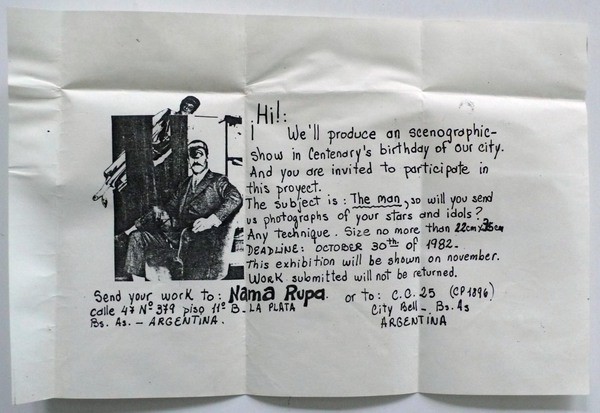 ¡Hi!:
We'll produce an scenographic-
show in Centenary's birthday of our city.
And you are invited to participate in
this proyect.
The subject is: The man, so will you send
us photographs of your stars and idols?
Any technique. Size no more than 22cm x 35cm
DEADLINE: OCTOBER 30th of 1982-
This exhibition will be shown on november.
WORK submitted will not be returned.
Send your work to: Nama Rupa. or to: C.C. 25 (CP 1896)
calle 47 Nº 379 piso 11º B- LA PLATA City Bell- Bs. As
Bs. As. - ARGENTINA. ARGENTINA